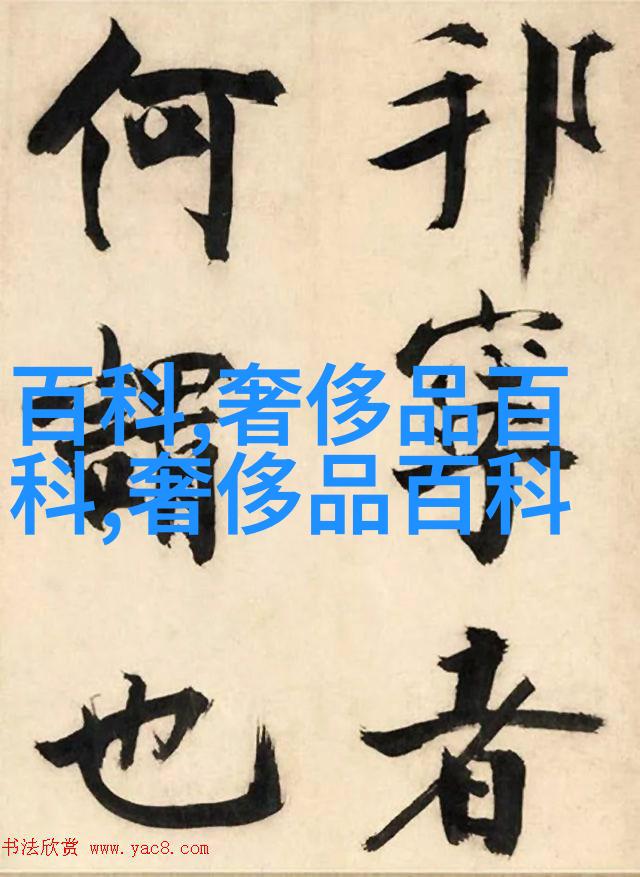 邦寧者
何謂也
百科,奢侈品百
科,奢侈品百科
书法欣赏 www.yac8.com